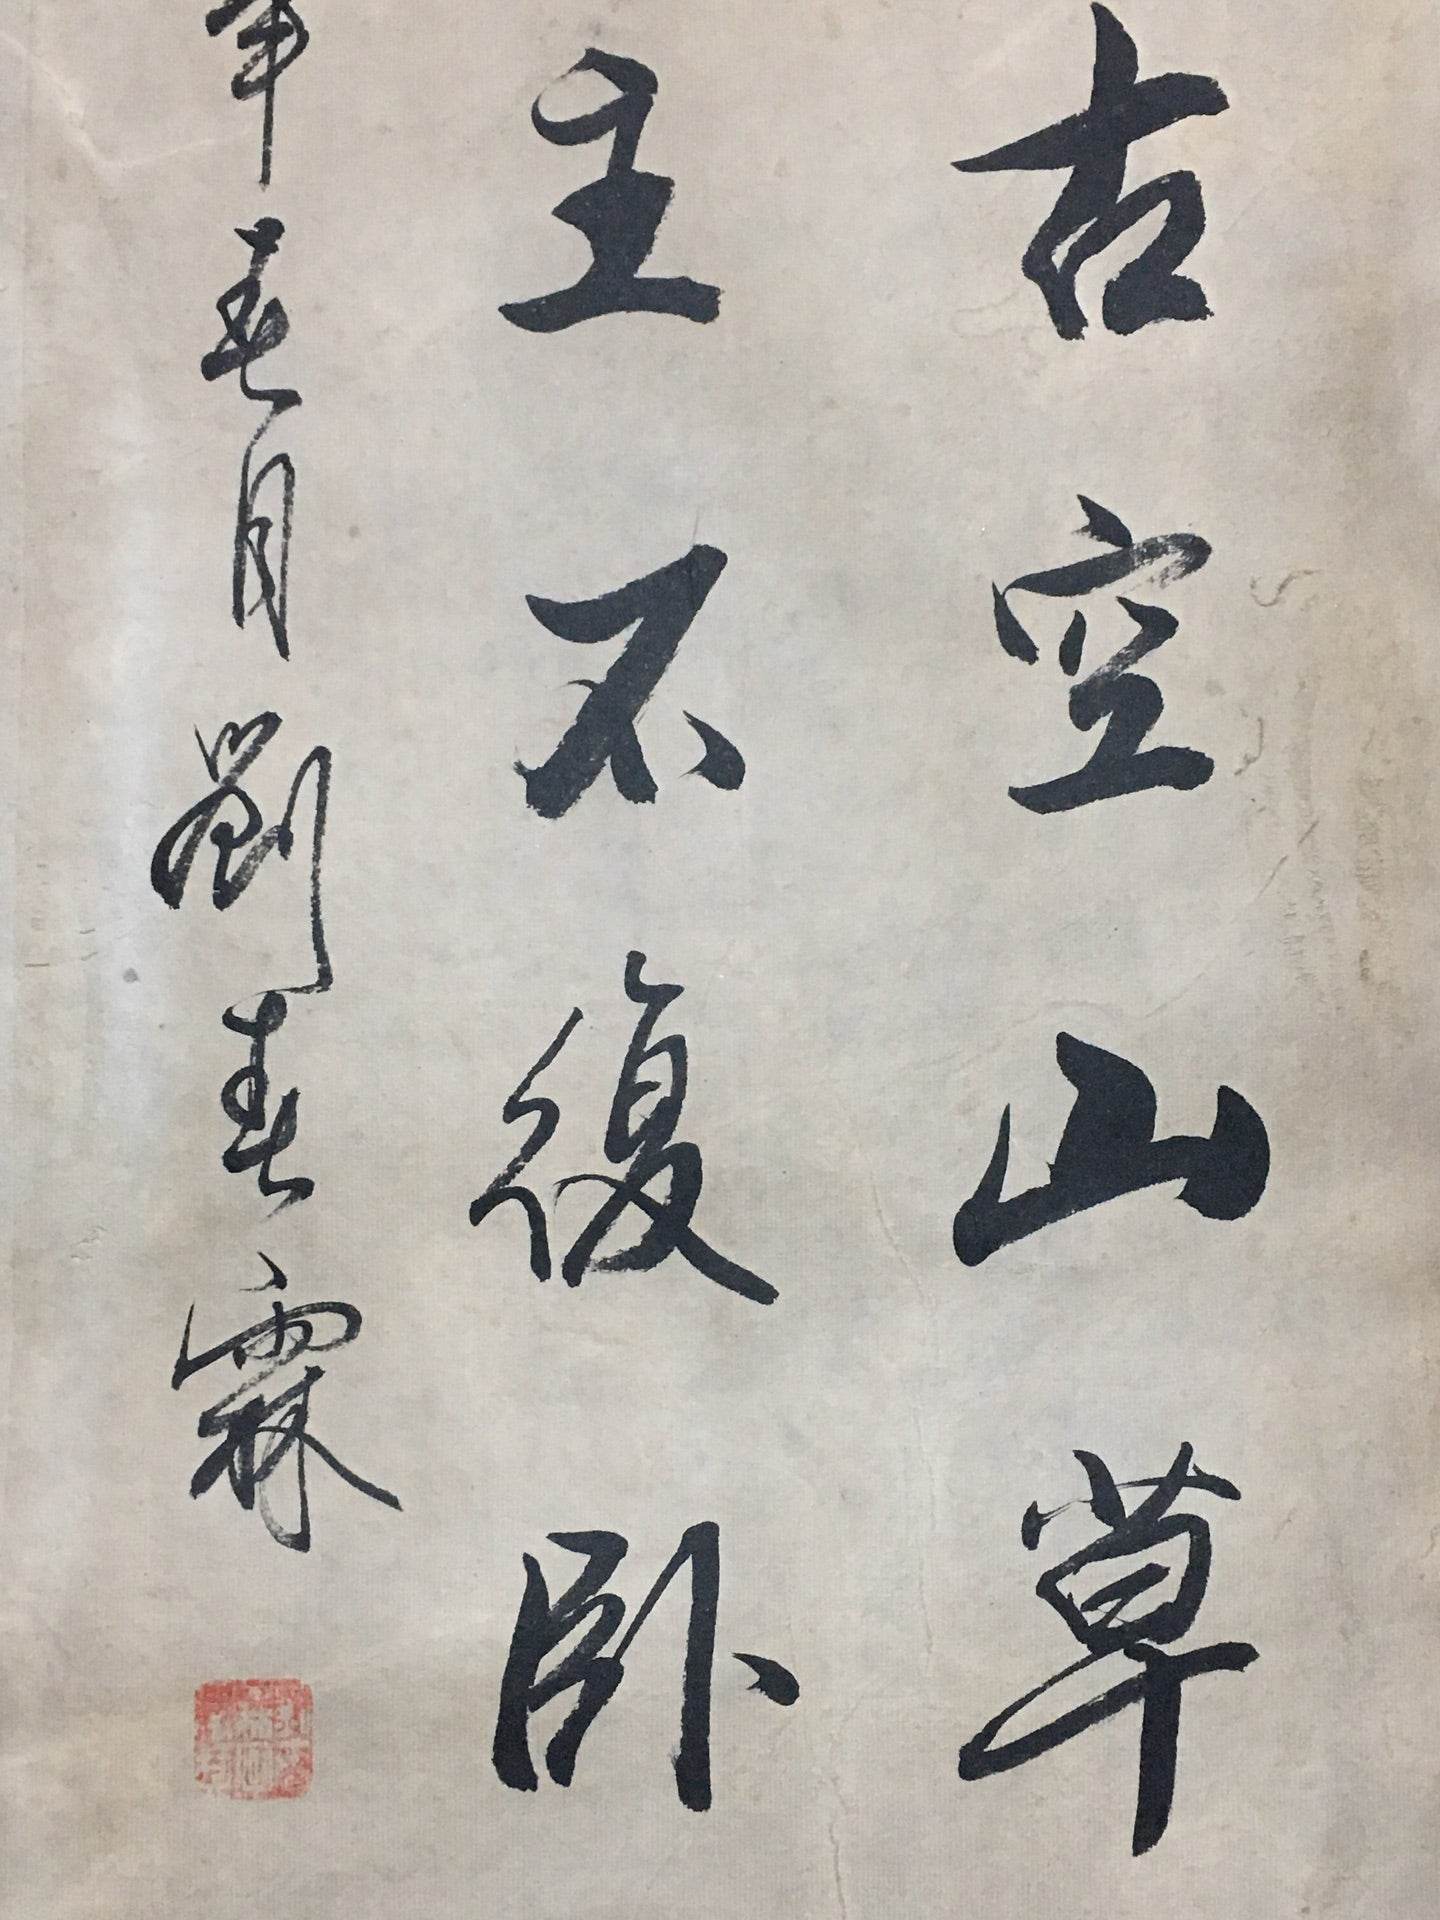 古空山草
主不復臥
年春月劉春霖